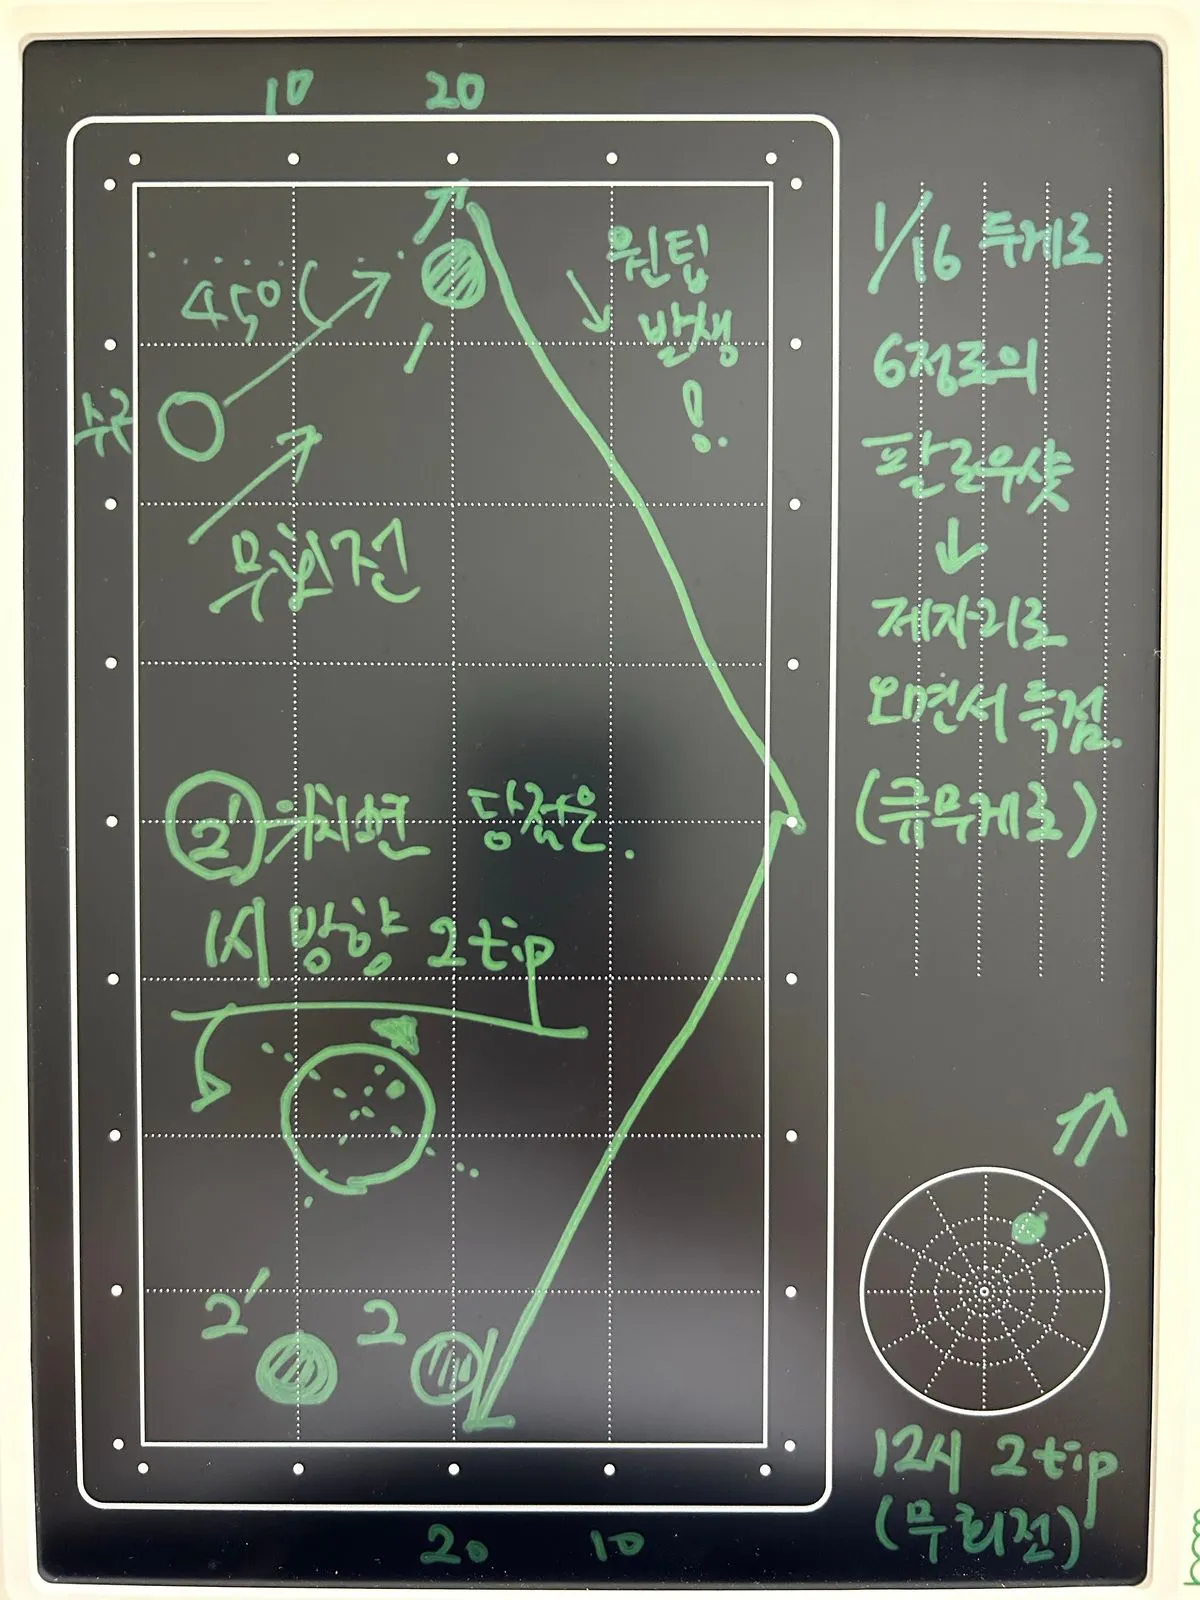 10 20
45°
원팁
발생
!
수구
무회전
2' 위치시면 당점은.
1시 방향 2tip
2' 2
20 10
1/16 두께로
6정도의
팔로우샷
↓
제자리로
오면서 득점.
(큐무게로)
12시 2tip
(무회전)